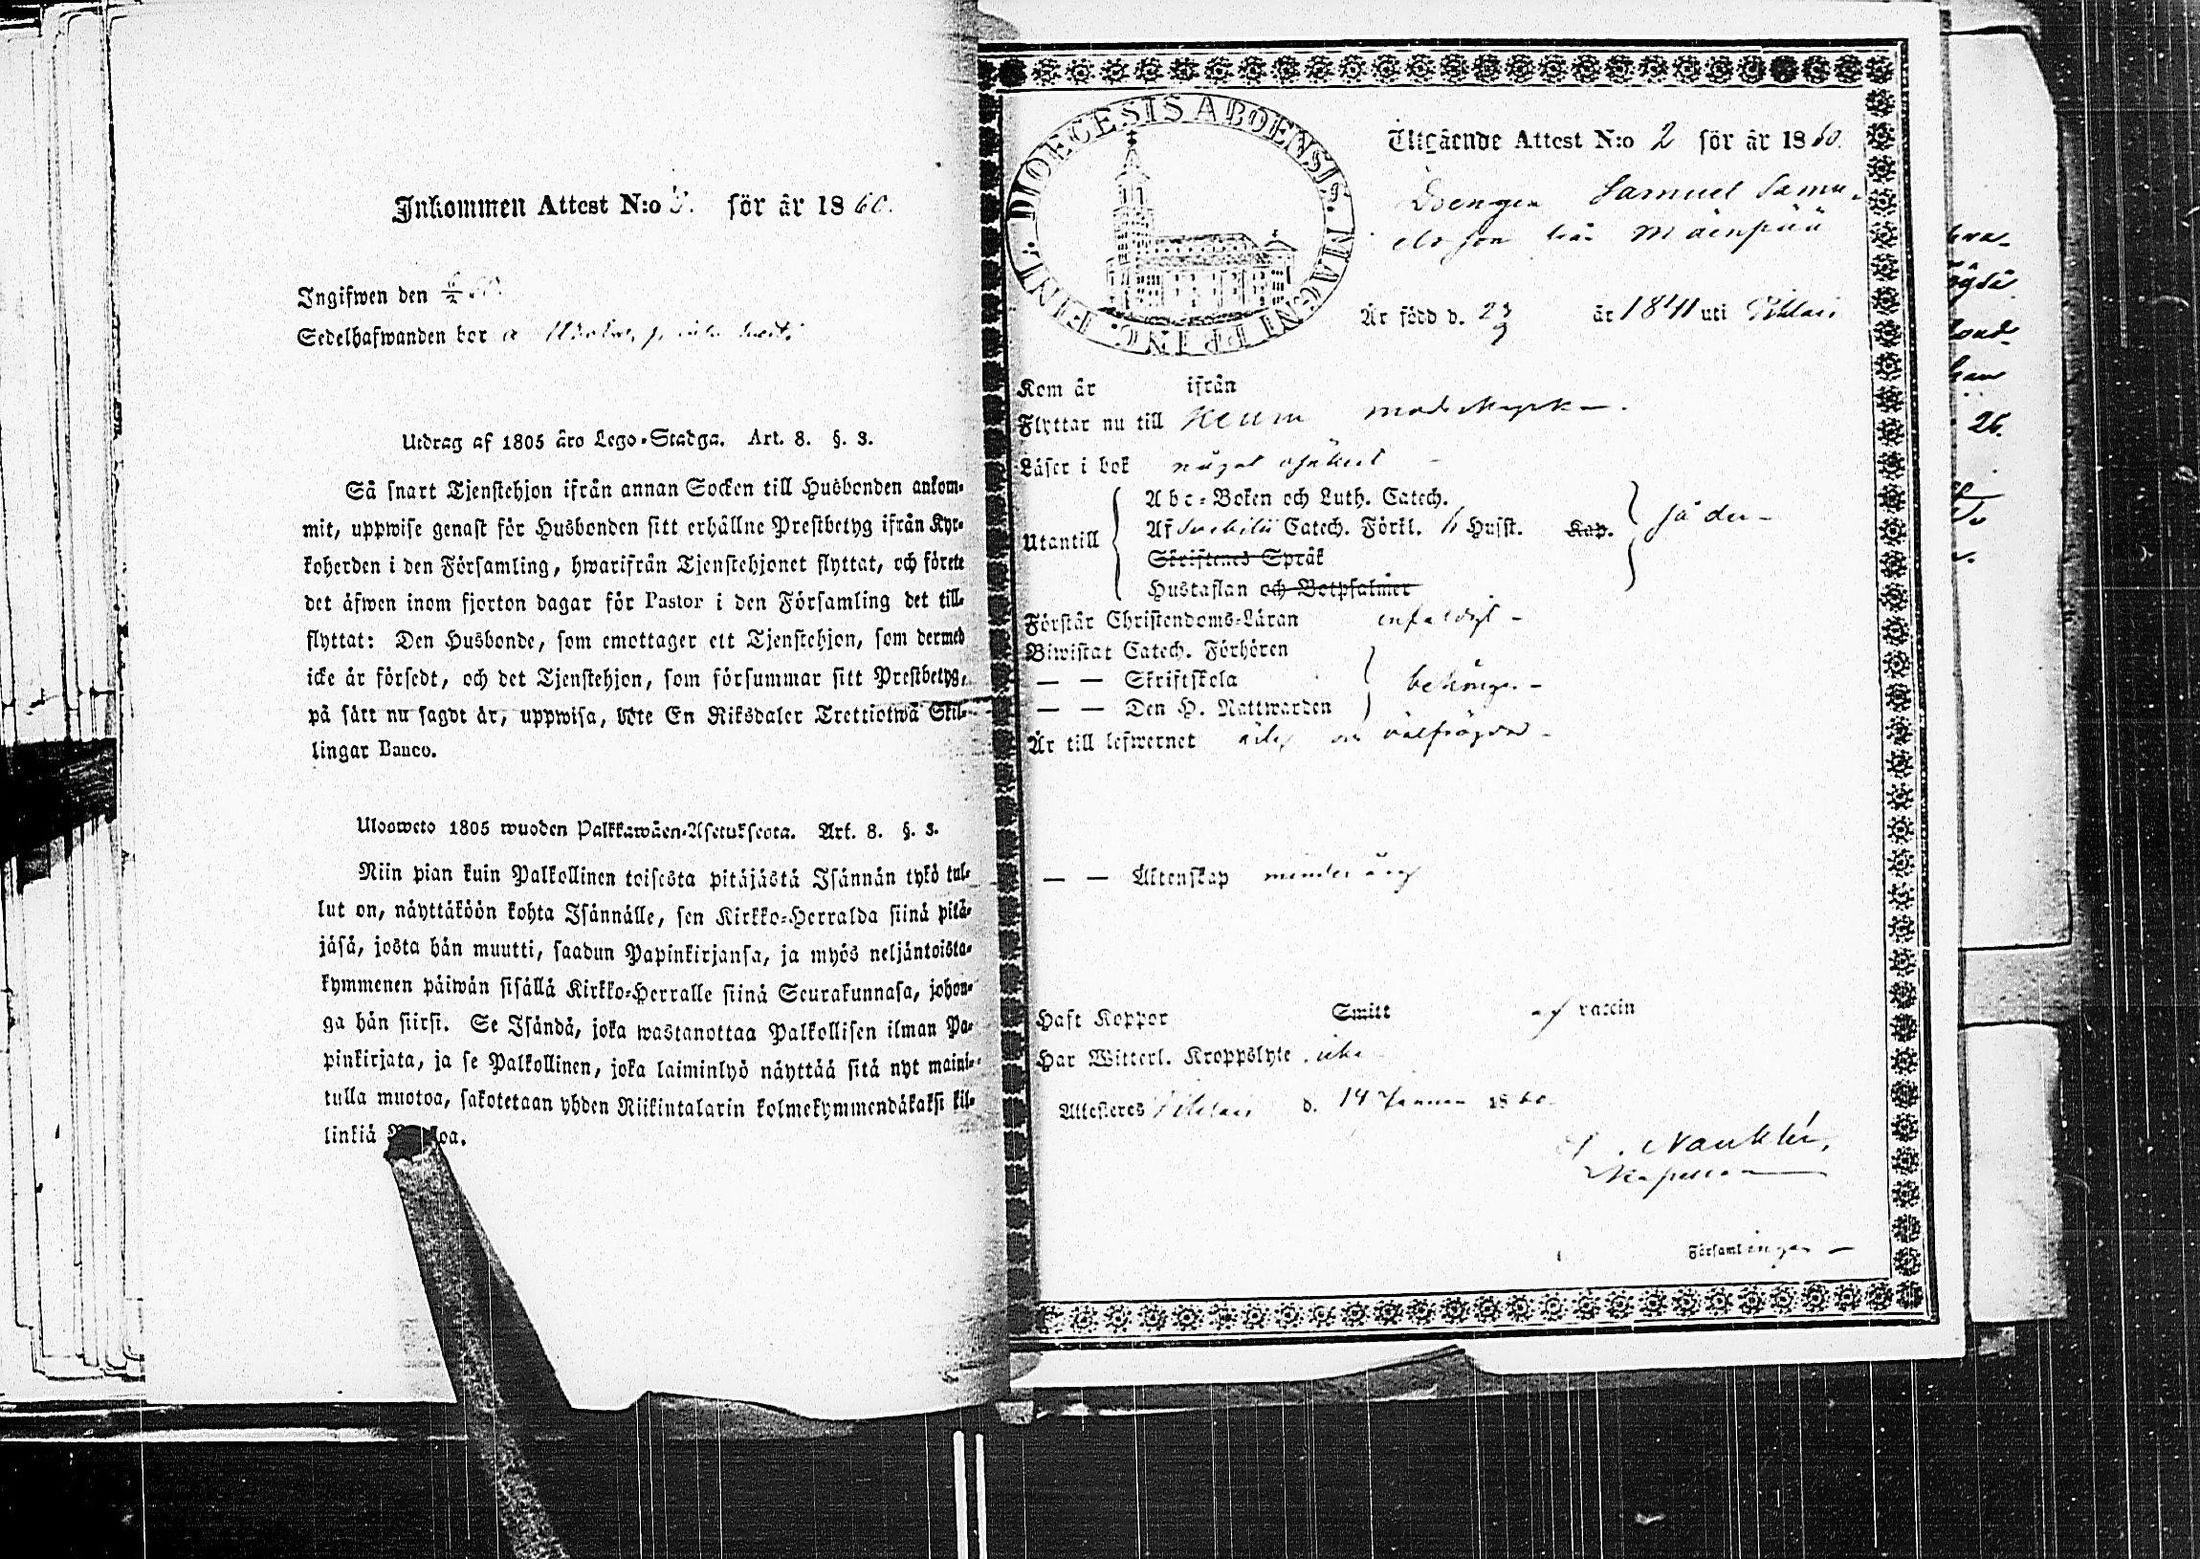 Inkommen Attest N:o för år 1860.
Ingifwen den
Sedelhafwanden bor
Utdrag af 1805 åro Lego-Stadga. Art. 8. §. 3.
Så snart Tjenstehjon ifrån annan Socken till Husbonden ankom-
mit, uppwise genast för Husbonden sitt erhållne Prestbetyg ifrån Kyr-
koherden i den Församling, hwarifrån Tjenstehjonet flyttat, och förete
det äfwen inom fjorton dagar för Pastor i den Församling det till-
flyttat: Den Husbonde, som emottager ett Tjenstehjon, som dermed
icke är försedt, och det Tjenstehjon, som försummar sitt Prestbetyg,
på sätt nu sagdt är, uppwisa, böte En Riksdaler Trettiotwå Skil-
lingar Banco.
Ulosweto 1805 wuoden Palkkawäen-Asetuksesta. Art. 8. §. 3.
Niin pian kuin Palkollinen toisesta pitäjästä Isännän tykö tul-
lut on, näyttäköön kohta Isännälle, sen Kirkko-Herralda siinä pitä-
jäsä, josta hän muutti, saadun Papinkirjansa, ja myös neljäntoista-
kymmenen päiwän sisällä Kirkko-Herralle siinä Seurakunnasa, johon-
ga hän siirsi. Se Isändä, joka wastanottaa Palkollisen ilman Pa-
pinkirjata, ja se Palkollinen, joka laiminlyö näyttää sitä nyt maini-
tulla muotoa, sakotetaan yhden Riikintalarin kolmekymmendäkaksi kil-
linkiä
DIOECESIS ABOENSIS. MAGNI PRINC. FINL.
Utgående Attest N:o 2 för år 1860.
Drengen Samuel Samu-
elsson från Mäenpää
Är född d. 23/9 år 1841 uti Piklais
Kom år ifrån
Flyttar nu till Keuru moderkyrka.
Läser i bok något osäkert
Utantill
Abc-Boken och Luth. Catech.
Af Svebilii Catech. Förkl. Husst. Kap.
Skriftenes Språk
Hustaflan och Botpsalmer
så der
Förstår Christendoms-Läran enfaldigt
Biwistat Catech. Förhören
— — Skriftskola
— — Den H. Nattwarden
behörigen
Är till lefwernet ärlig och välfräjdad
— — Äktenskap minderårig
Haft Koppor Smitt af vaccin
Har Witterl. Kroppslyte icke
Attesteres d. 14 Januari 1860.
Församlingen
26.